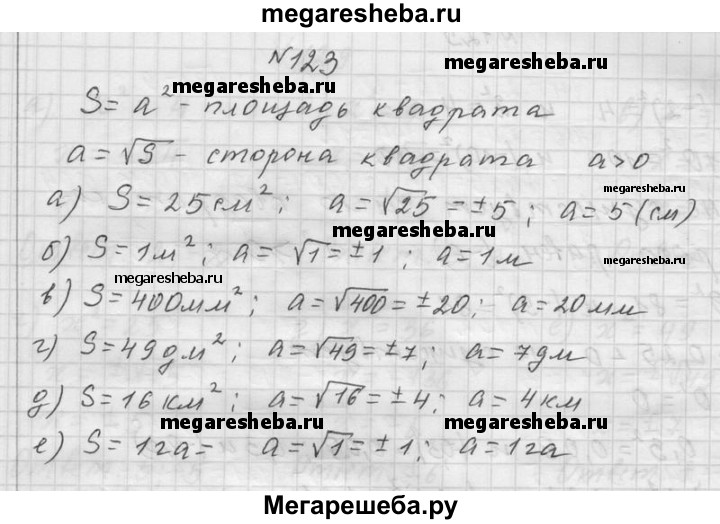 megaresheba.ru
№123
megaresheba.ru megaresheba.ru
S = a² - площадь квадрата
a = √S - сторона квадрата a>0
megaresheba.ru
а) S = 25 см²; a = √25 = ±5; a = 5 (см)
megaresheba.ru
б) S = 1 м²; a = √1 = ±1; a = 1 м
megaresheba.ru megaresheba.ru
в) S = 400 мм²; a = √400 = ±20; a = 20 мм
megaresheba.ru
г) S = 49 дм²; a = √49 = ±7; a = 7 дм
д) S = 16 км²; a = √16 = ±4; a = 4 км
megaresheba.ru megaresheba.ru
е) S = 1га = a = √1 = ±1; a = 1га
Мегарешеба.ру